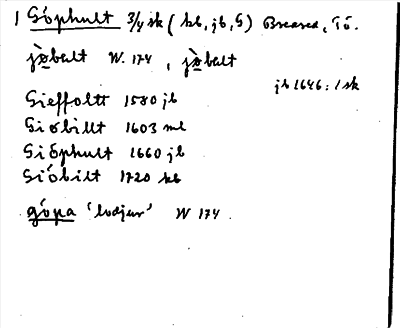 1 Sjöphult 3/4 sk (kb, jb, G) Breared, Tö.
jò̲belt W. 174, jò̲belt
jb 1646: 1 sk
Sieffoltt 1580 jb
Siöbillt 1603 ml
Siöphult 1660 jb
Siöbilt 1720 kb
göpa 'lodjur' W 174.